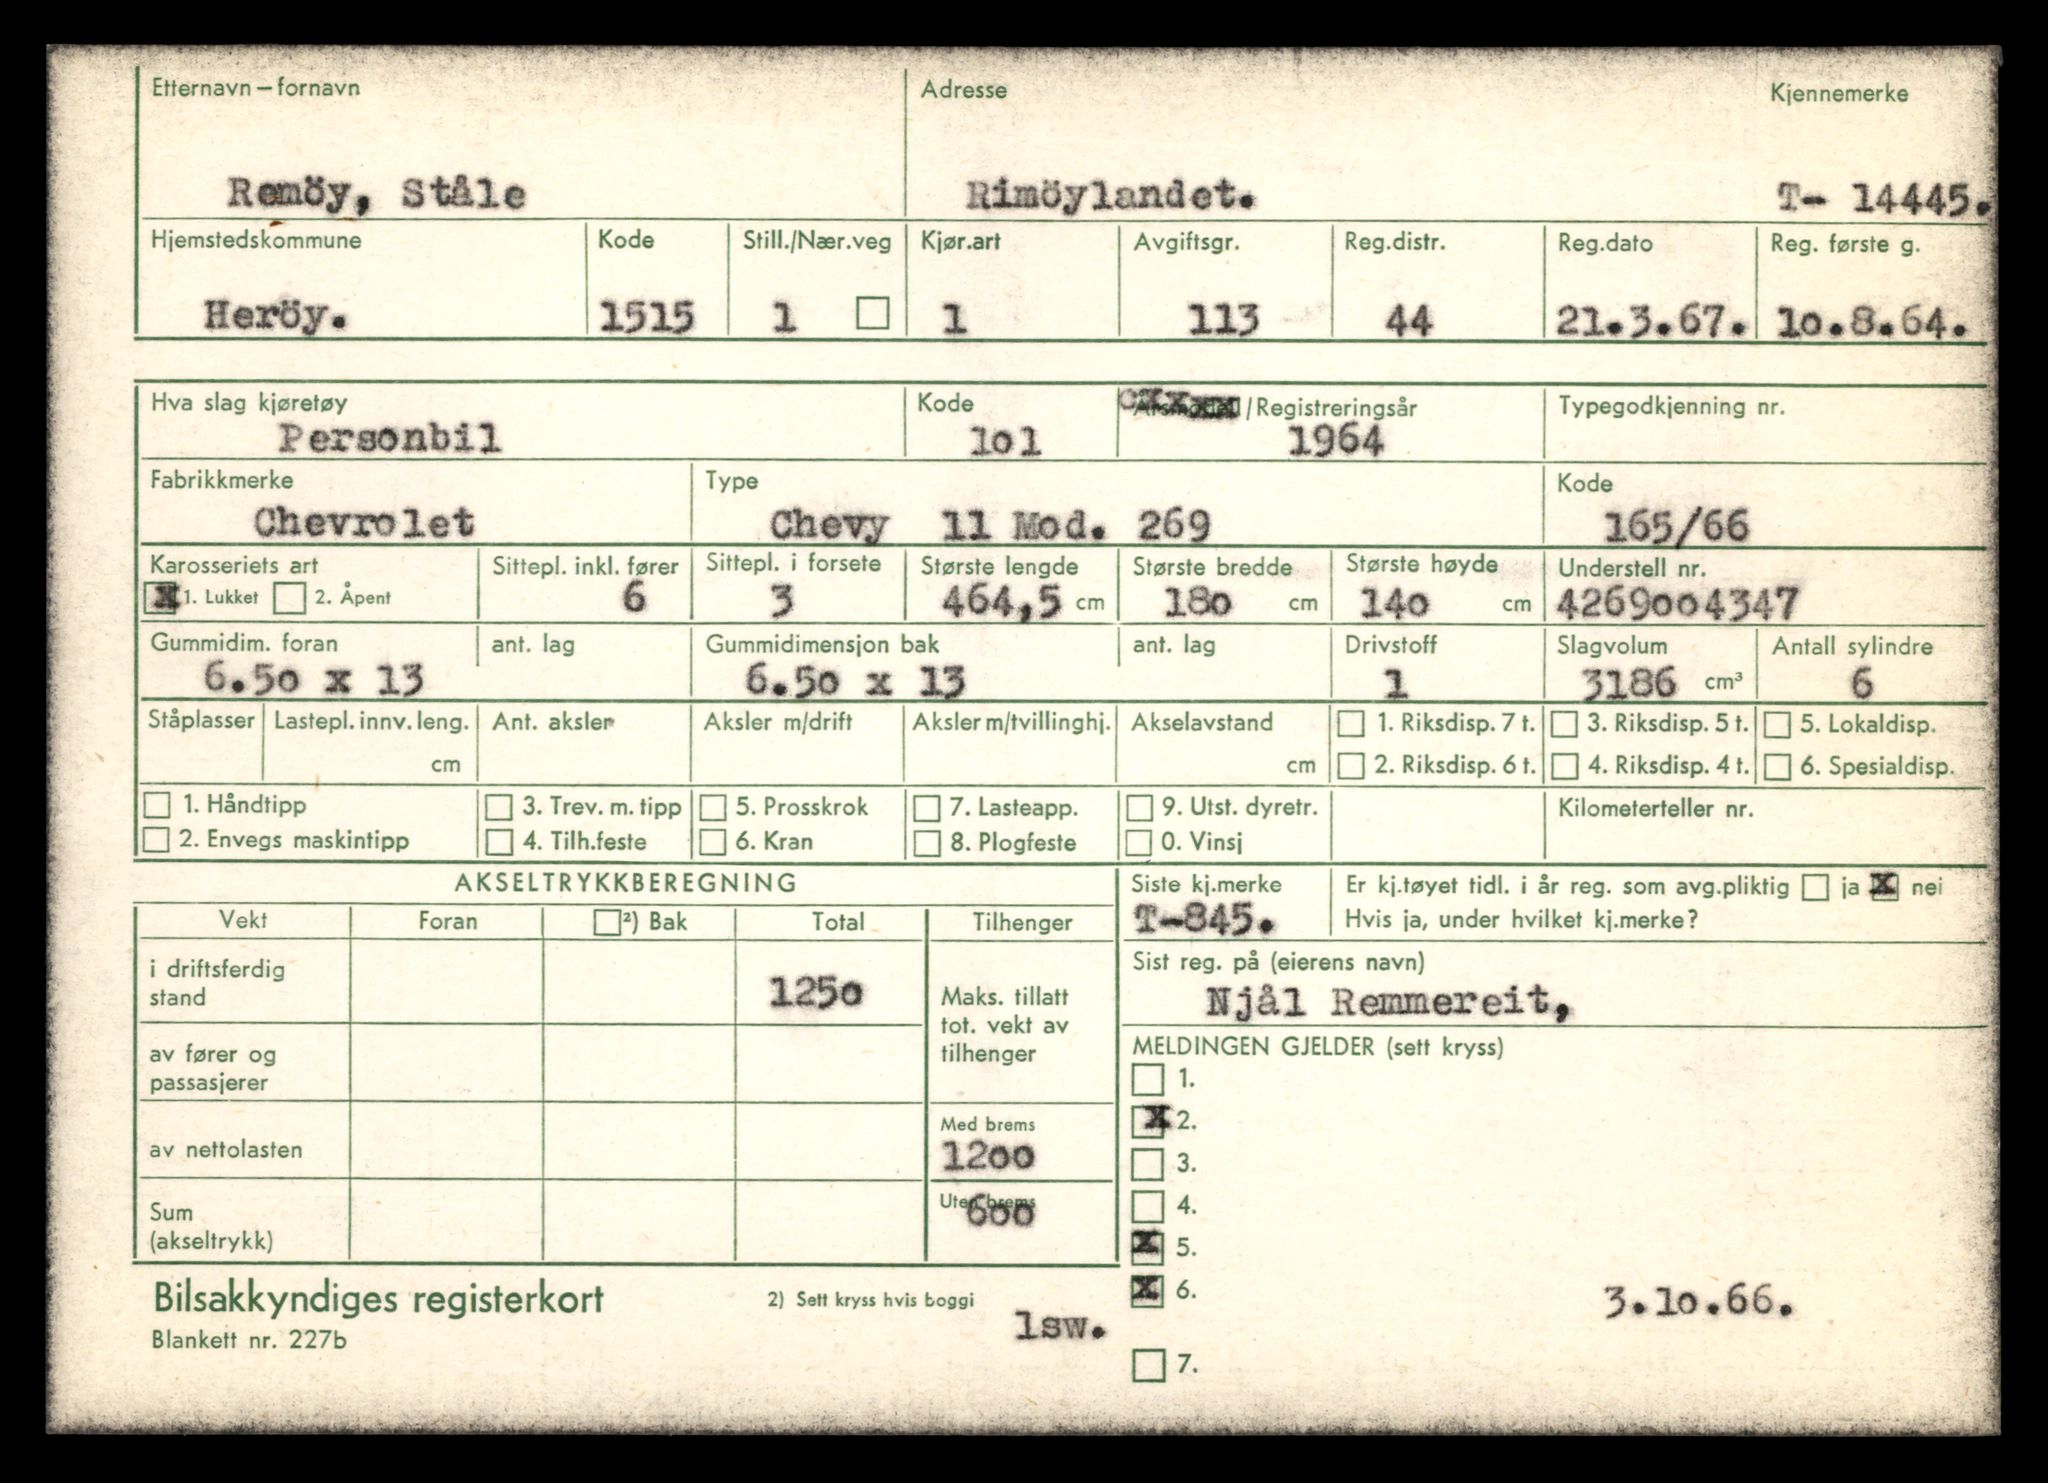 Etternavn – fornavn Adresse Kjennemerke
Remöy, Ståle Rimöylandet. T- 14445.
Hjemstedskommune Kode Still./Nær.veg Kjør.art Avgiftsgr. Reg.distr. Reg.dato Reg. første g.
Heröy. 1515 1 1 113 44 21.3.67. 10.8.64.
Hva slag kjøretøy Kode /Registreringsår Typegodkjenning nr.
Personbil 101 1964
Fabrikkmerke Type Kode
Chevrolet Chevy 11 Mod. 269 165/66
Karosseriets art Sittepl. inkl. fører Sittepl. i forsete Største lengde Største bredde Største høyde Understell nr.
x 1. Lukket 2. Åpent 6 3 464,5 cm 180 cm 140 cm 4269004347
Gummidim. foran ant. lag Gummidimensjon bak ant. lag Drivstoff Slagvolum Antall sylindre
6.50 x 13 6.50 x 13 1 3186 cm³ 6
Ståplasser Lastepl. innv. leng. Ant. aksler Aksler m/drift Aksler m/tvillinghj. Akselavstand 1. Riksdisp. 7 t. 3. Riksdisp. 5 t. 5. Lokaldisp.
cm cm 2. Riksdisp. 6 t. 4. Riksdisp. 4 t. 6. Spesialdisp.
1. Håndtipp 3. Trev. m. tipp 5. Prosskrok 7. Lasteapp. 9. Utst. dyretr. Kilometerteller nr.
2. Envegs maskintipp 4. Tilh.feste 6. Kran 8. Plogfeste 0. Vinsj
AKSELTRYKKBEREGNING Siste kj.merke Er kj.tøyet tidl. i år reg. som avg.pliktig ja x nei
Vekt Foran ²) Bak Total Tilhenger T-845. Hvis ja, under hvilket kj.merke?
i driftsferdig Sist reg. på (eierens navn)
stand 1250 Maks. tillatt Njål Remmereit,
tot. vekt av
av fører og tilhenger MELDINGEN GJELDER (sett kryss)
passasjerer 1.
Med brems x 2.
av nettolasten 1200 3.
Uten brems 4.
Sum 600
(akseltrykk) x 5.
Bilsakkyndiges registerkort 2) Sett kryss hvis boggi x 6. 3.10.66.
lsw.
Blankett nr. 227b 7.